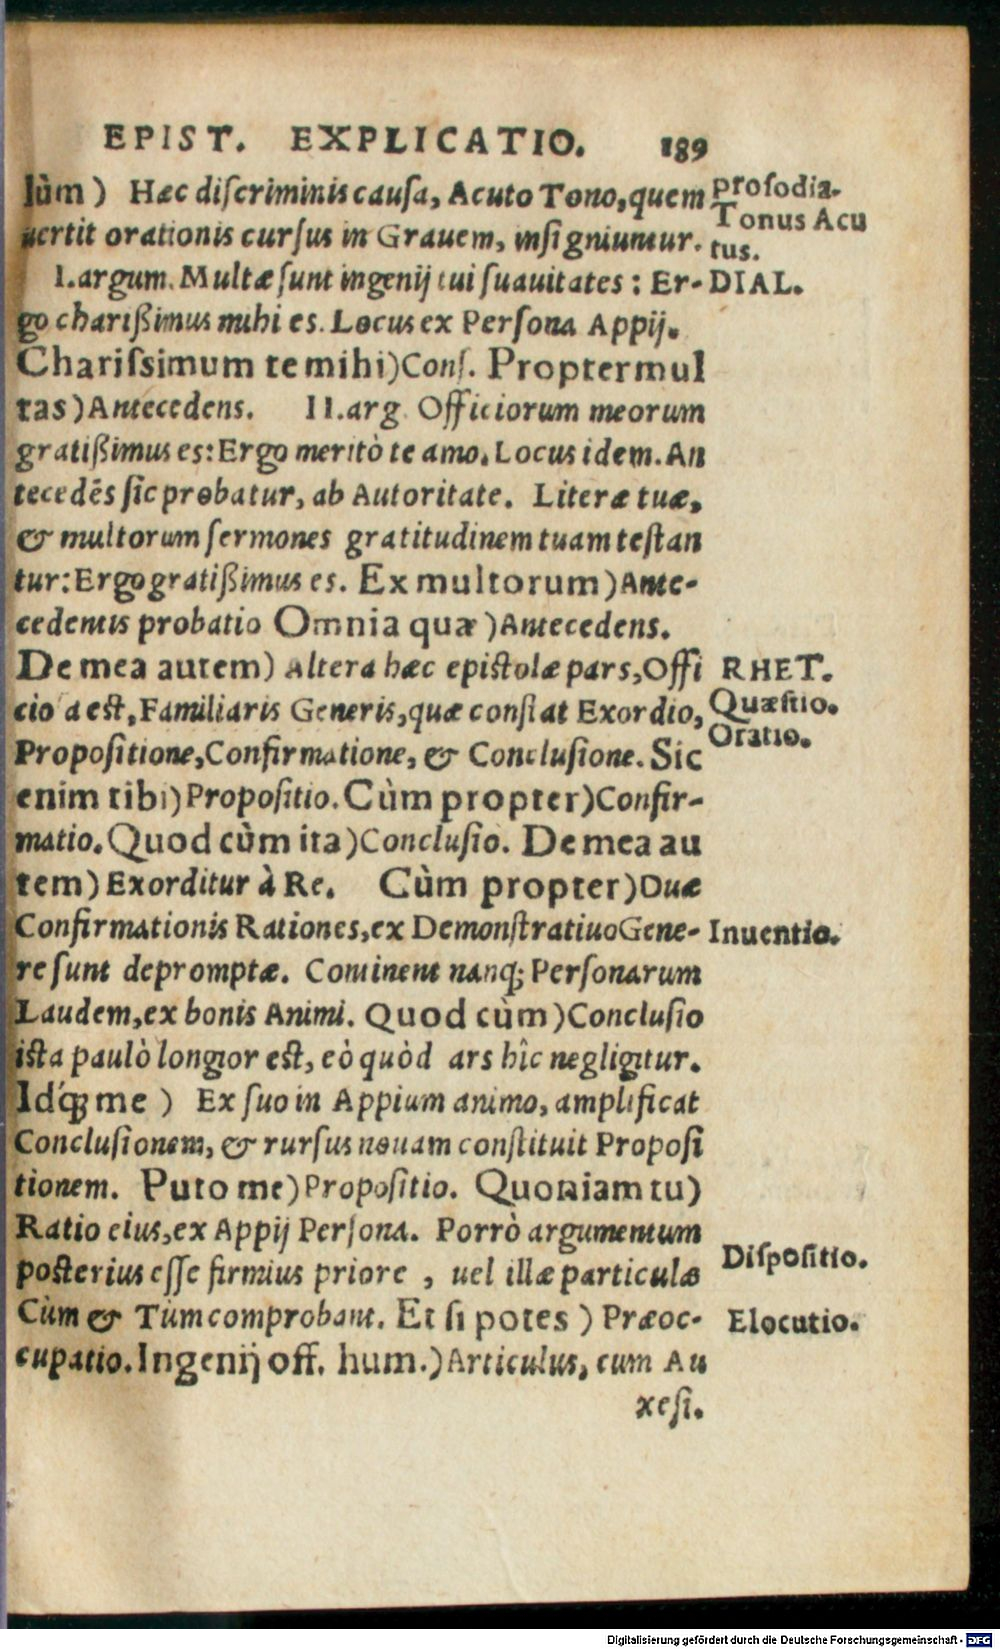 EPIST. EXPLICATIO. 189
lùm) Hæc discriminis causa, Acuto Tono, quem
uertit orationis cursus in Grauem, insigniuntur.
prosodia.
Tonus Acu
tus.
I. argum. Multæ sunt ingenij tui suauitates: Er-
DIAL.
go charißimus mihi es. Locus ex Persona Appij.
Charissimum te mihi) Cons. Propter mul
tas) Antecedens. II. arg. Officiorum meorum
gratißimus es: Ergo meritò te amo. Locus idem. An
tecedẽs sic probatur, ab Autoritate. Literæ tuæ,
& multorum sermones gratitudinem tuam testan
tur: Ergo gratißimus es. Ex multorum) Ante-
cedentis probatio Omnia quæ) Antecedens.
De mea autem) Altera hæc epistolæ pars, Offi
RHET.
cio a est, Familiaris Generis, quæ constat Exordio,
Quæstio.
Oratio.
Propositione, Confirmatione, & Conclusione. Sic
enim tibi) Propositio. Cùm propter) Confir-
matio. Quod cùm ita) Conclusio. De mea au
tem) Exorditur à Re. Cùm propter) Duæ
Confirmationis Rationes, ex Demonstratiuo Gene-
Inuentio.
re sunt depromptæ. Continent nanq; Personarum
Laudem, ex bonis Animi. Quod cùm) Conclusio
ista paulò longior est, eò quòd ars hîc negligitur.
Id'q; me) Ex suo in Appium animo, amplificat
Conclusionem, & rursus nouam constituit Proposi
tionem. Puto me) Propositio. Quoniam tu)
Ratio eius, ex Appij Persona. Porrò argumentum
posterius esse firmius priore, uel illæ particulæ
Dispositio.
Cùm & Tùm comprobant. Et si potes) Præoc-
Elocutio.
cupatio. Ingenij off. hum.) Articulus, cum Au
xesi.
Digitalisierung gefördert durch die Deutsche Forschungsgemeinschaft - DFG